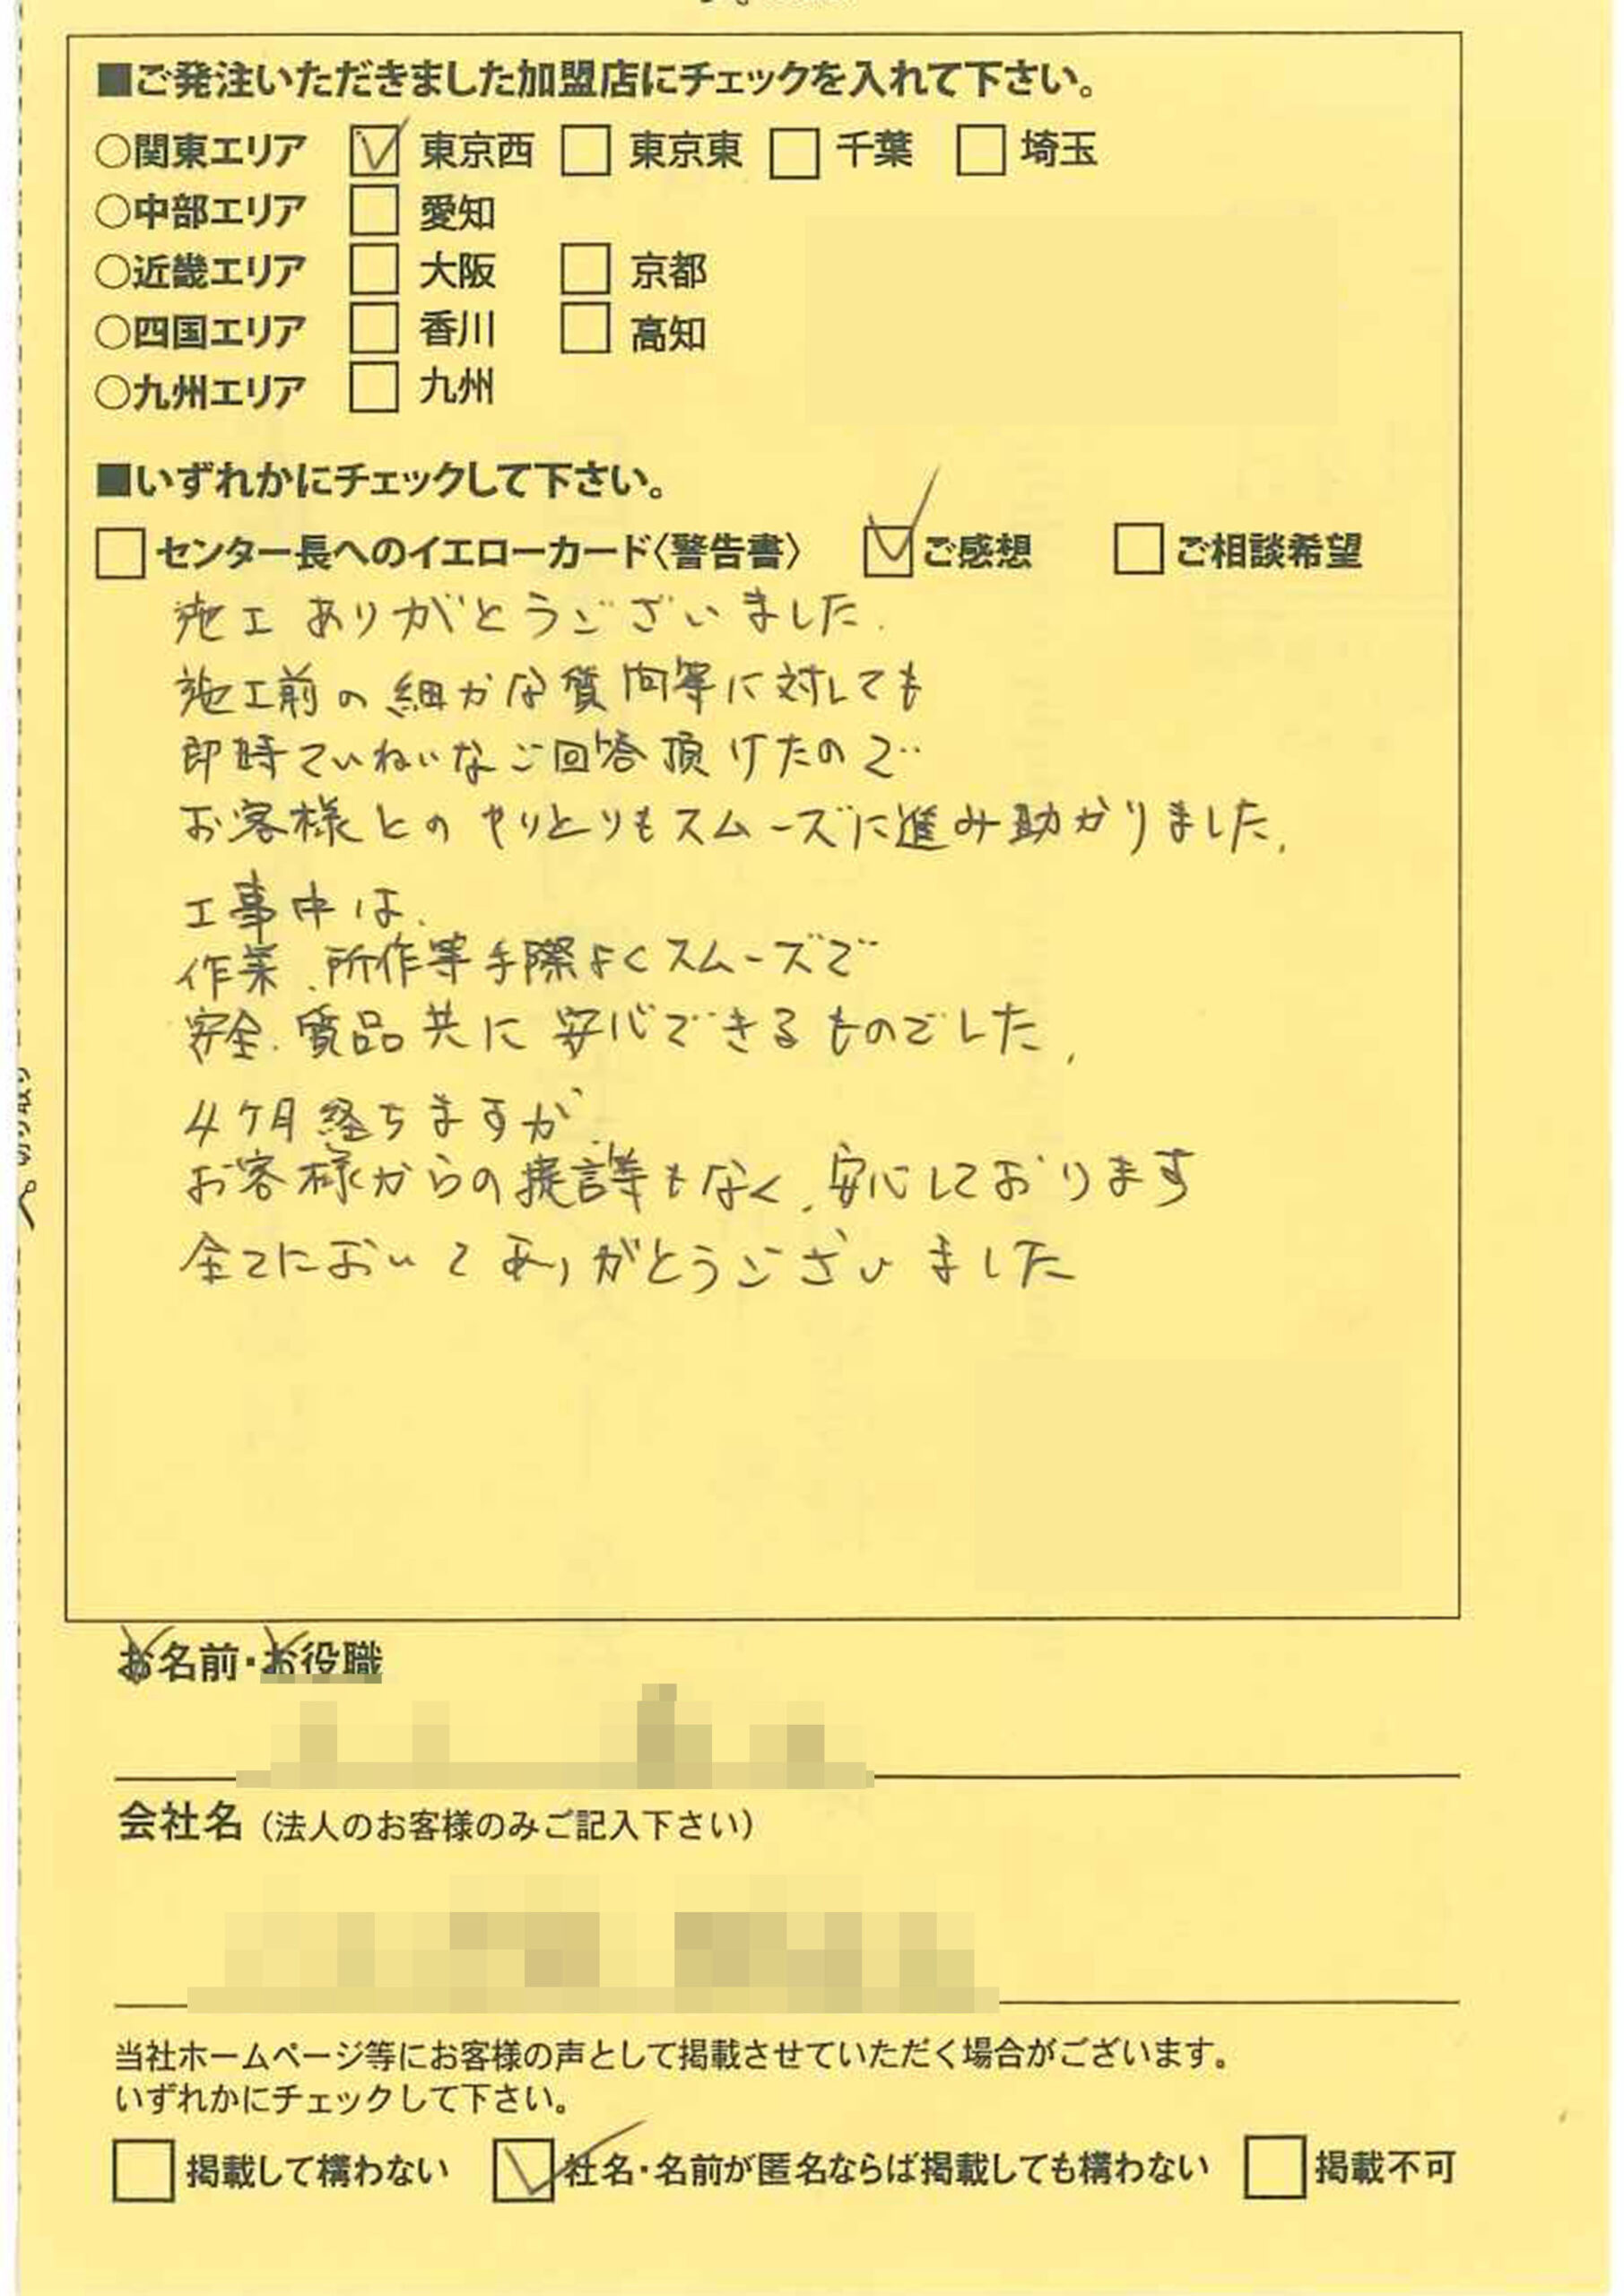 ■ご発注いただきました加盟店にチェックを入れて下さい。
○関東エリア ☑ 東京西 □ 東京東 □ 千葉 □ 埼玉
○中部エリア □ 愛知
○近畿エリア □ 大阪 □ 京都
○四国エリア □ 香川 □ 高知
○九州エリア □ 九州
■いずれかにチェックして下さい。
□センター長へのイエローカード〈警告書〉 ☑ご感想 □ご相談希望
施工 ありがとうございました.
施工前の細かな質問等に対しても
即時ていねいなご回答頂けたので
お客様とのやりとりもスムーズに進み助かりました.
工事中は.
作業.所作等手際よくスムーズで
安全.質品共に安心できるものでした.
4ケ月経ちますが
お客様からの提議等もなく.安心しております
全てにおいてありがとうございました
お名前・お役職
会社名（法人のお客様のみご記入下さい）
当社ホームページ等にお客様の声として掲載させていただく場合がございます。
いずれかにチェックして下さい。
□掲載して構わない ☑社名・名前が匿名ならば掲載しても構わない □掲載不可